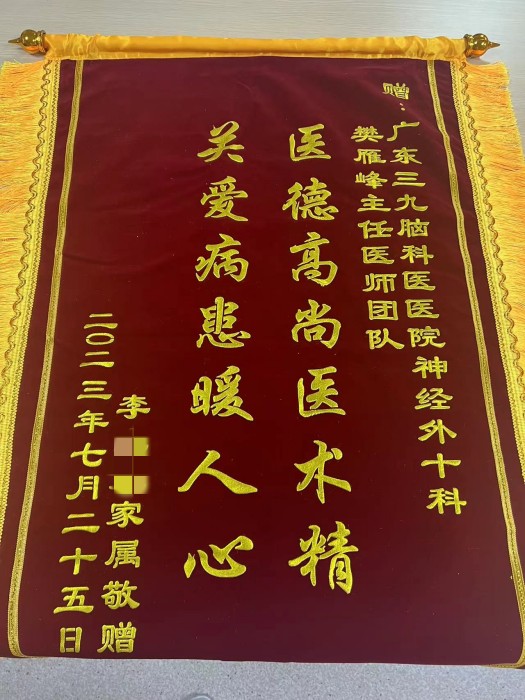 赠：
广东三九脑科医医院神经外十科
樊雁峰主任医师团队
医德高尚医术精
关爱病患暖人心
李 家属敬赠
二〇二三年七月二十五日